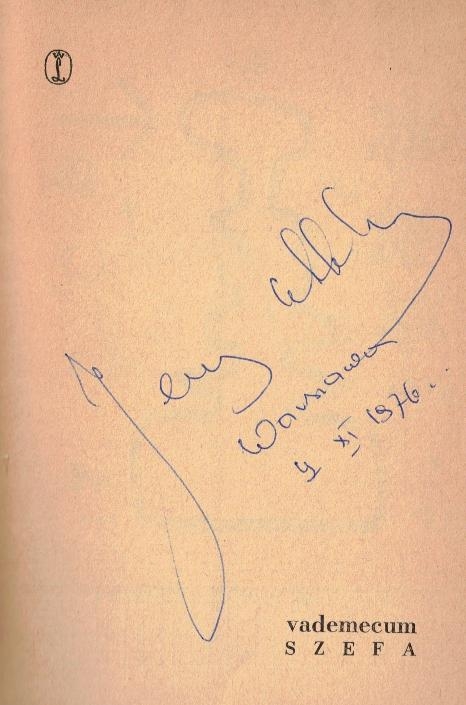 Jerzy
Warszawa
XI 1976
vademecum
SZEFA